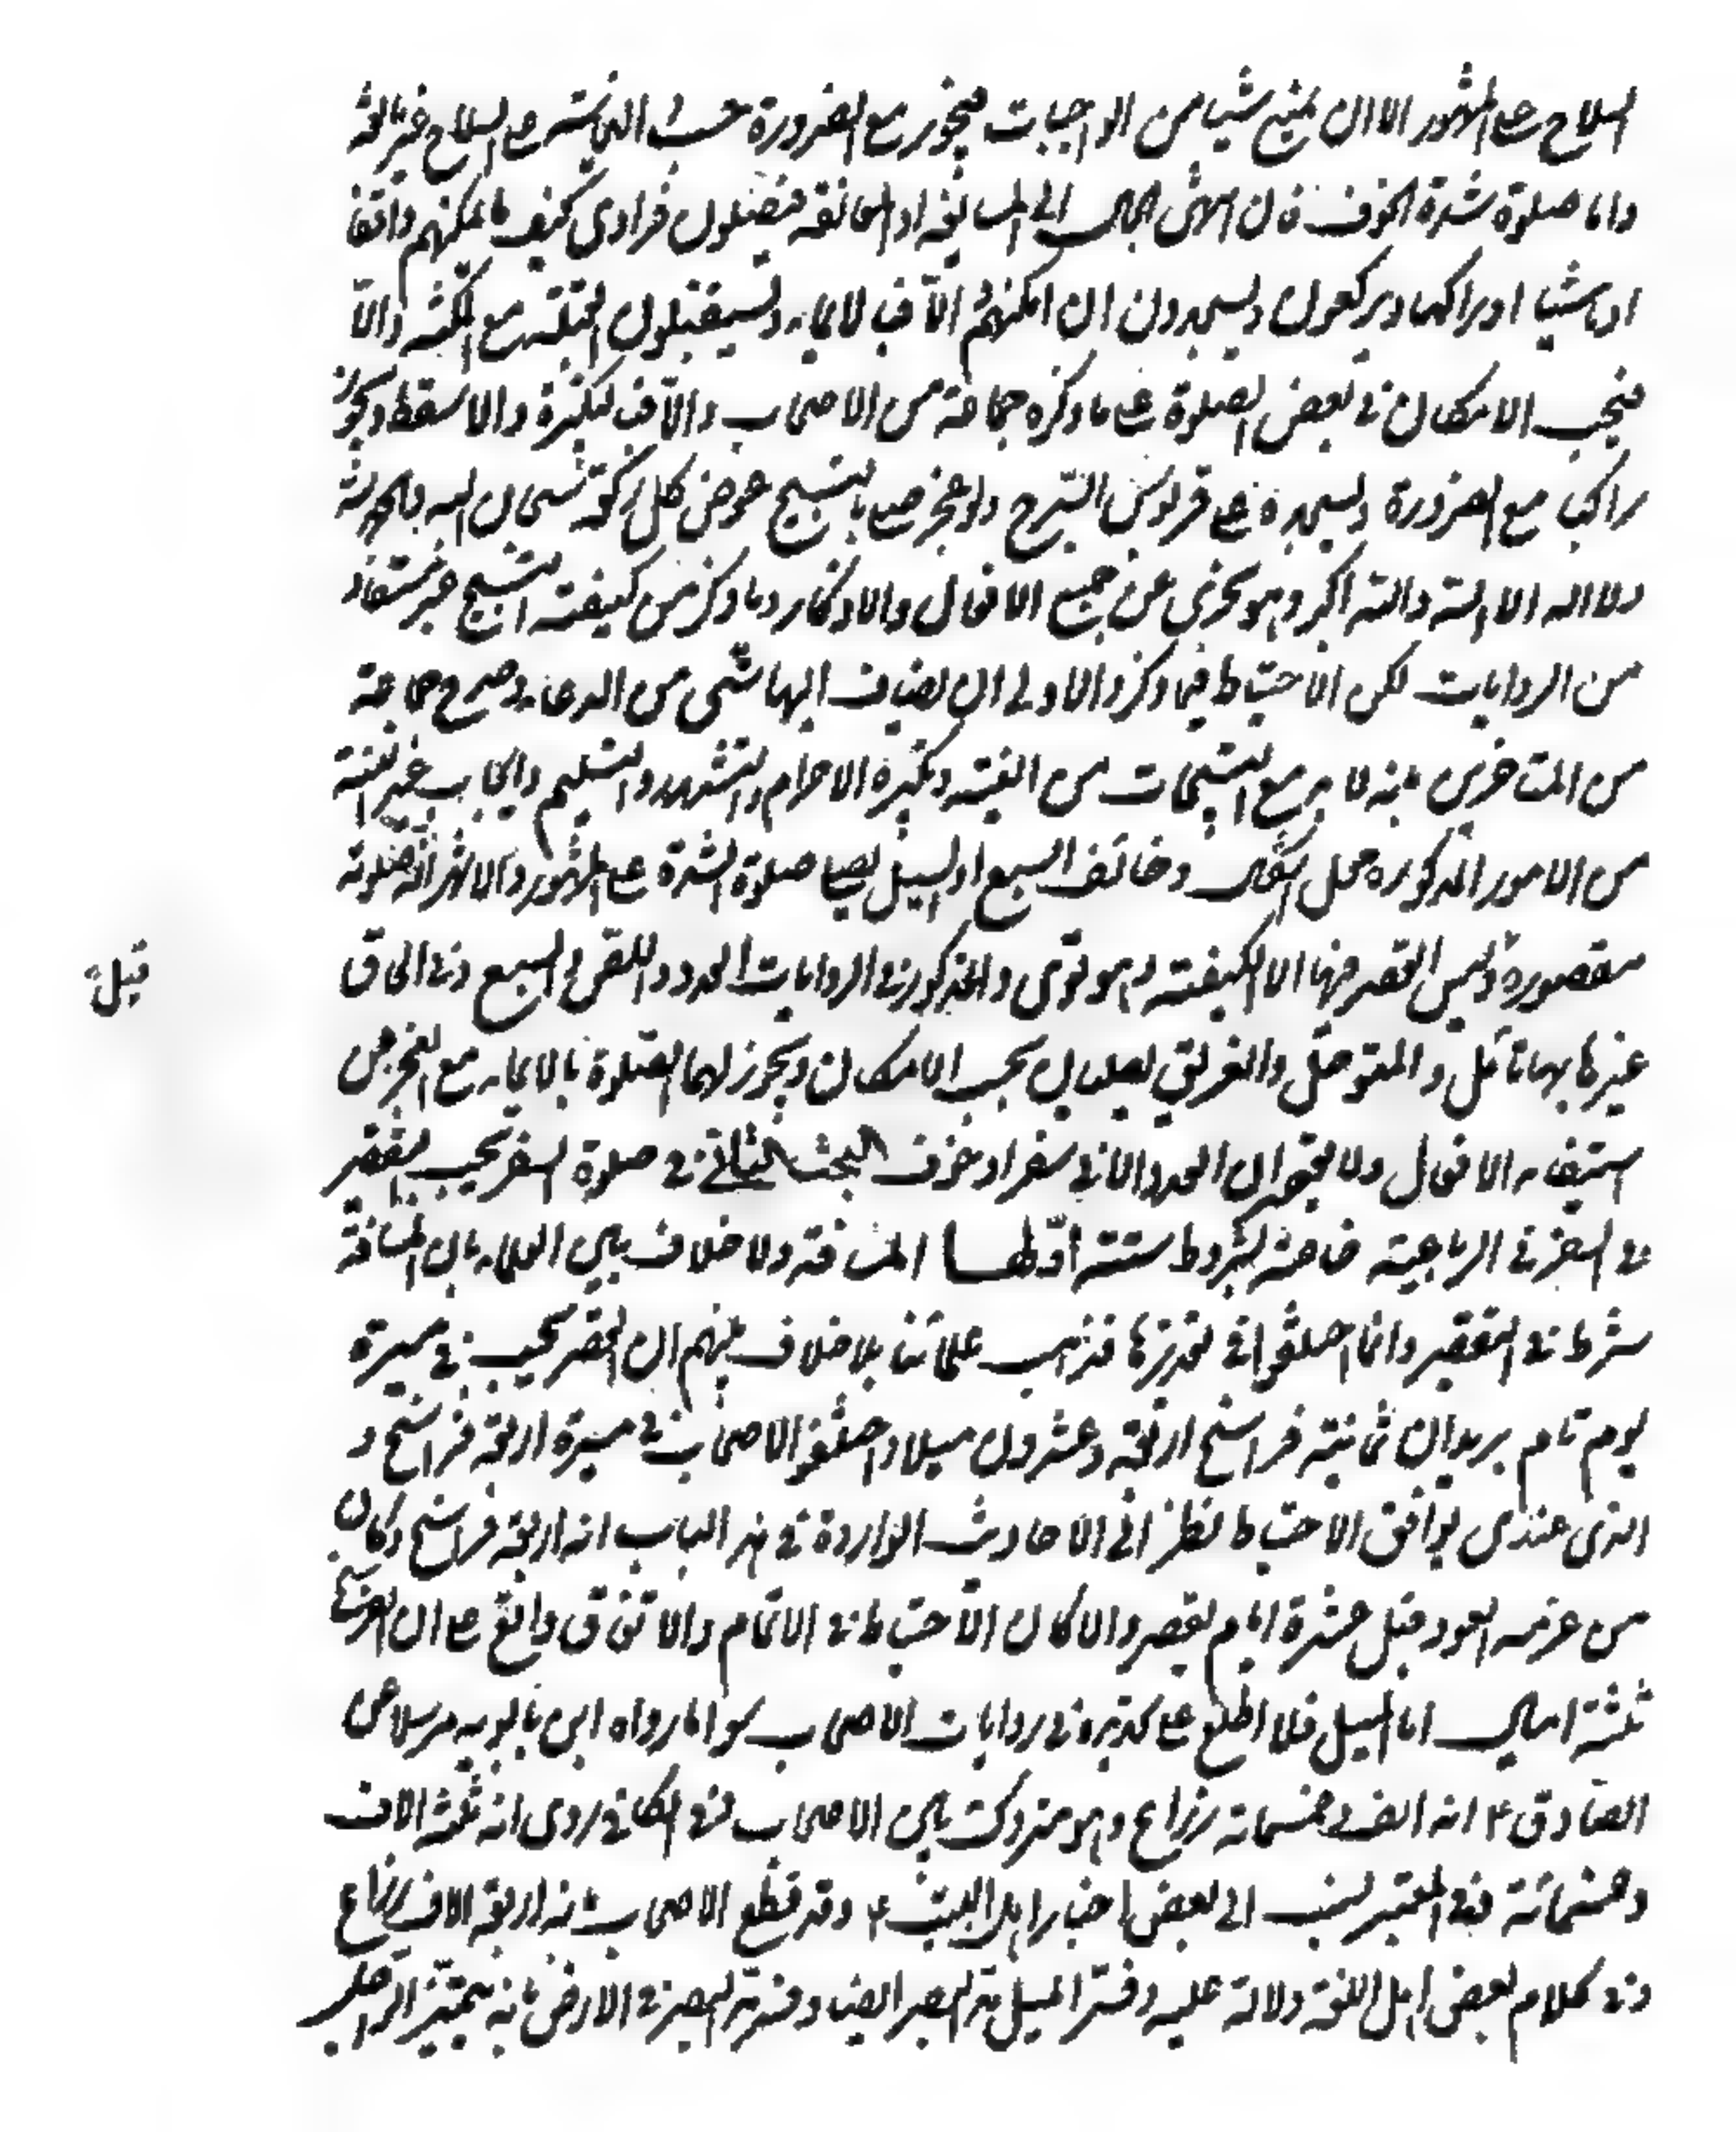 السلاح على المشهور الا ان يمنع شيئا من الواجبات فيجوز مع الضرورة حسب النجاسة على السلاح غير مانعة
واما صلوة شدة الخوف فان انتهى الحال الى المسايفة او المعانقة فيصلون فرادى كيف ما يمكنهم واقفا
او ماشيا او راكبا ويركعون ويسجدون ان امكنهم والا فبالايماء ويستقبلون القبلة مع المكنة والا
فبحسب الامكان في بعض الصلوة على ما ذكره جماعة من الاصحاب والا فبتكبيرة والا سقط ويجوز
راكبا مع الضرورة ويسجد على قربوس السرج ولو عجز صلى بالتسبيح عوض كل ركعة سبحان الله والحمد لله
ولا اله الا الله والله اكبر وهو يجزي عن جميع الافعال والاذكار وما ذكر من كيفية التسبيح غير مستفاد
من الروايات لكن الاحتياط فيما ذكر والاولى ان يضاف اليها شئ من الدعاء وصرح جماعة
من المتاخرين بانه لابد مع التسبيحات من النية وتكبيرة الاحرام والتشهد والتسليم وايجاب غير النية
من الامور المذكورة محل اشكال وخائف السبع او السيل يصلي صلوة الشدة على المشهور والاشهر انه صلوته
مقصورة وقيل ليس القصر فيها الا الكيفية وهو قوى والمذكور في الروايات العدو واللص والسبع وفي الحاق
غيرها بها تامل والمتوحل والغريق يصليان بحسب الامكان ويجوز لهما الصلوة بالايماء مع العجز من
استيفاء الافعال ولا يقصران العدد الا في سفر او خوف البحث الثاني في صلوة السفر يجب التقصير
في السفر في الرباعية خاصة بشروط ستة اولها المسافة ولا خلاف بين العلماء بان المسافة
شرط في التقصير وانما اختلفوا في تحديدها فذهب علمائنا بلا خلاف بينهم ان القصر يجب في مسيرة
يوم تام بريدان ثمانية فراسخ اربعة وعشرون ميلا واختلف الاصحاب في مسيرة اربعة فراسخ و
الذى عندى يوافق الاحتياط نظرا الى الاحاديث الواردة في هذا الباب انه اربعة فراسخ وكان
من عزمه العود قبل عشرة ايام يقصر والا كان الاحتياط في الاتمام والاتفاق واقع على ان الفرسخ
ثلثة اميال اما الميل فلم اطلع على تحديده في روايات الاصحاب سوا ما رواه ابن بابويه مرسلا عن
الصادق ع انه الف وخمسماة ذراع وهو متروك بين الاصحاب ففي الكافي روى انه ثلثة الاف
وخمسمائة ففي المعتبر نسب الى بعض اخبار اهل البيت ع وقد قطع الاصحاب بانه اربعة الاف ذراع
وفي كلام بعض اهل اللغة دلالة عليه وفسر الميل بمد البصر ايضا وقدر مد البصر في الارض بانه يتميز الراجل
قيل